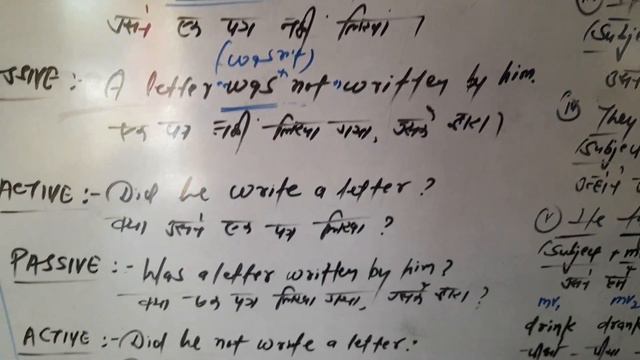 उसने एक पत्र नहीं लिखा ।
(wasn't)
SSIVE:- A letter was not written by him.
एक पत्र नहीं लिखा गया, उसके द्वारा ।
ACTIVE:- Did he write a letter?
क्या उसने एक पत्र लिखा ?
PASSIVE:- Was a letter written by him?
क्या एक पत्र लिखा गया, उसके द्वारा ?
ACTIVE:- Did he not write a letter.
(Subje
उस
(iv) They
(Subjec
उन्होंने
(v) He
(Subject + m
उसने
mv1 mv2
drink drank